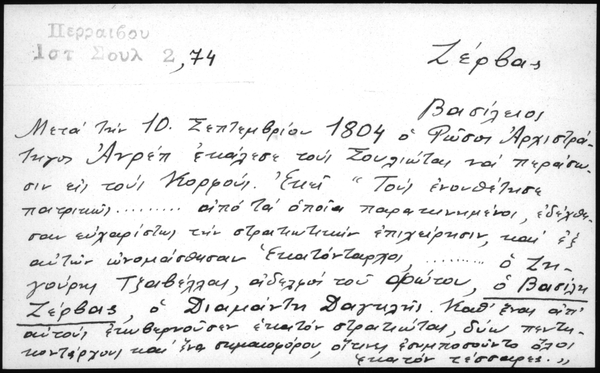 Περραιβου
Ιστ Σουλ 2,74
Ζέρβας
Βασίλειος
Μετά τήν 10. Σεπτεμβρίου 1804 ὁ Ρῶσος Ἀρχιστρά-
τηγος Ἀνρέπ ἐκάλεσε τούς Σουλιώτας νά περάσω-
σιν εἰς τούς Κορφούς. Ἐκεῖ "Τούς ἐνουθέτησε
πατρικῶς ......... ἀπό τά ὁποῖα παρακινημένοι, ἐδέχθη-
σαν εὐχαρίστως τήν στρατιωτικήν ἐπιχείρησιν, καί ἐξ
αὐτῶν ὠνομάσθησαν Ἑκατόνταρχοι, ......... ὁ Ζη-
γούρης Τζαβέλλας, ἀδελφός τοῦ Φώτου, ὁ Βασίλη
Ζέρβας, ὁ Διαμάντη Δαγκλῆς. Καθ' ἕνας ἀπ'
αὐτούς ἐκυβερνοῦσεν ἑκατόν στρατιώτας, δύω πεντη-
κοντάρχους καί ἕνα σημαιοφόρον, οἵτινες ἐσυμποσοῦντο ὅλοι
ἑκατόν τέσσαρες."